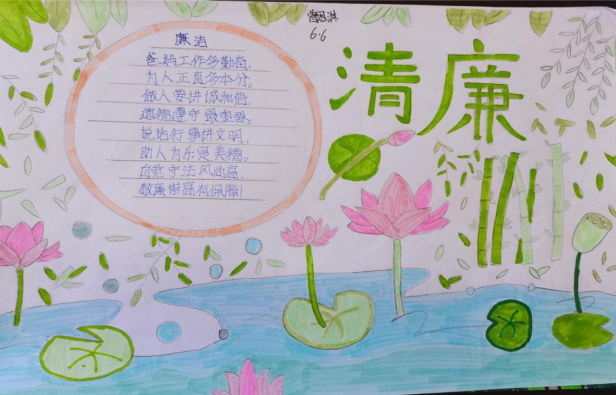 廉洁
爸妈工作多勤苦,
为人正直多本分。
做人要讲诚和信,
道德遵守最重要。
说话行事讲文明,
助人为乐是美德。
自觉守法风尚高,
敬廉崇洁有保障!
6.6
清廉